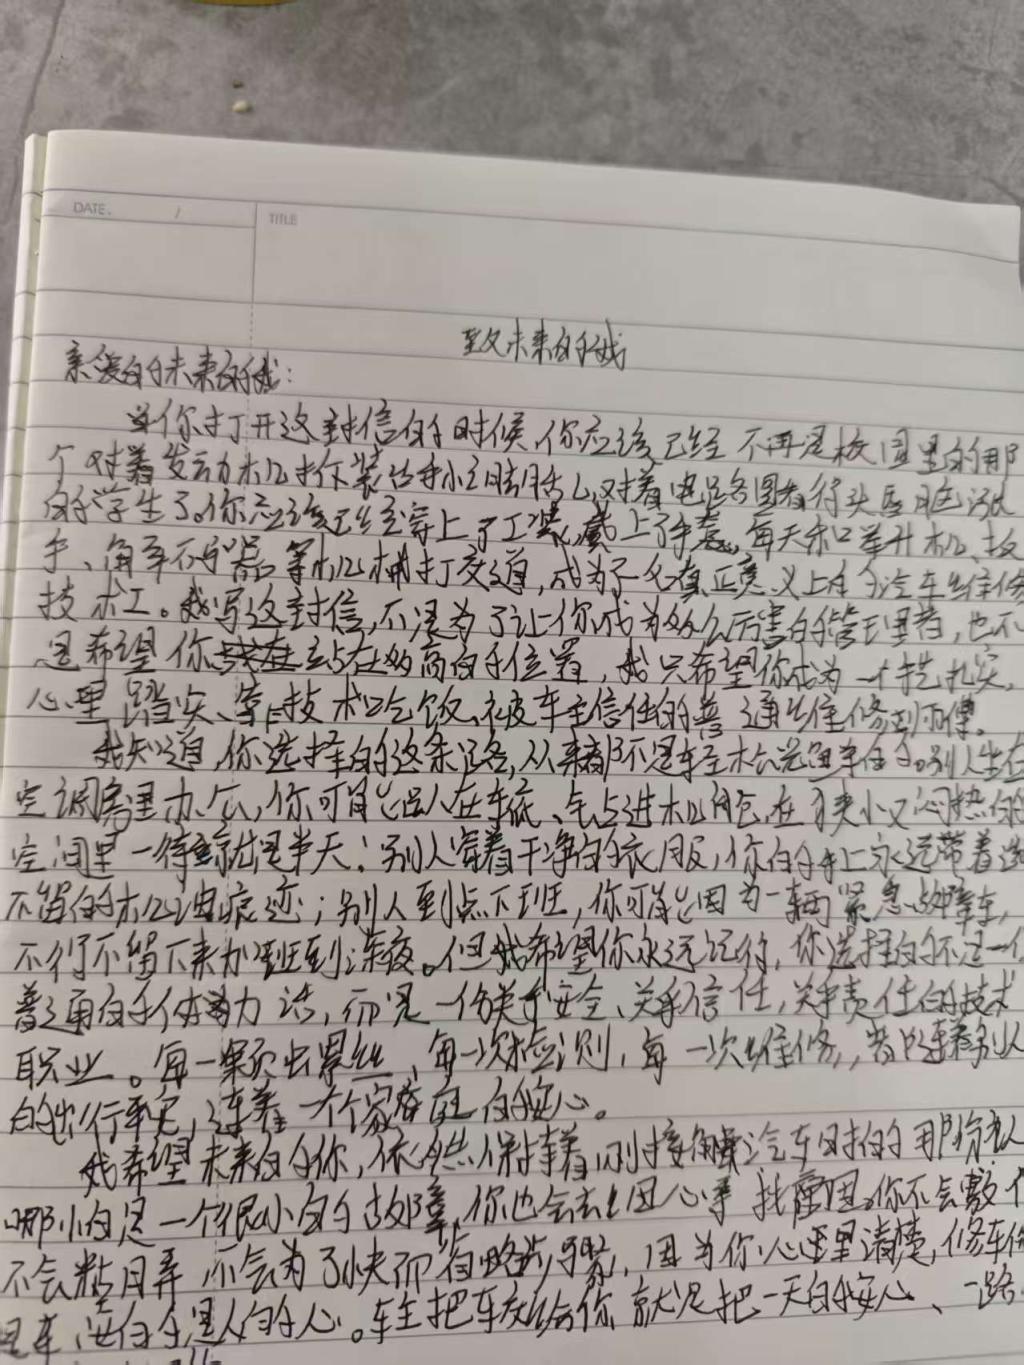 DATE. /
TITLE
致未来的我
亲爱的未来的我：
当你打开这封信的时候,你应该已经不再是校园里的那
个对着发动机拆装 对着电路图 头
的学生了。你应该已经穿上了工装,戴上了手套,每天和举升机、扳
手、 器等机械打交道,成为了一名真正意义上的汽车维修
技术工。我写这封信,不是为了让你成为多么厉害的管理者,也不
是希望你 站在多高的位置,我只希望你成为一个 扎实,
心里踏实、靠技术吃饭、被车主信任的普通维修师傅。
我知道,你选择的这条路,从来都不是轻松 的。别人坐在
空调房里办公,你可能 在车底、钻进机舱,在狭小又闷热的
空间里一待就是半天；别人穿着干净的衣服,你的手上永远带着洗
不 的机油痕迹；别人到点下班,你可能因为一辆紧急故障车,
不得不留下来加班到深夜。但我希望你永远记得,你选择的不是一个
普通的体力活,而是一份关乎安全、关乎信任,关乎责任的技术
职业。每一颗 螺丝、每一次检测,每一次维修,都连着别人
的出行平安,连着一个家庭的安心。
我希望未来的你,依然保持着刚接触汽车时的那份认
哪怕是一个很小的故障,你也会 心 找原因。你不会敷
不会 不会为了快而省略步骤,因为你心里清楚,修车修
是车, 的是人的心。车主把车交给你,就是把一天的安心、一路